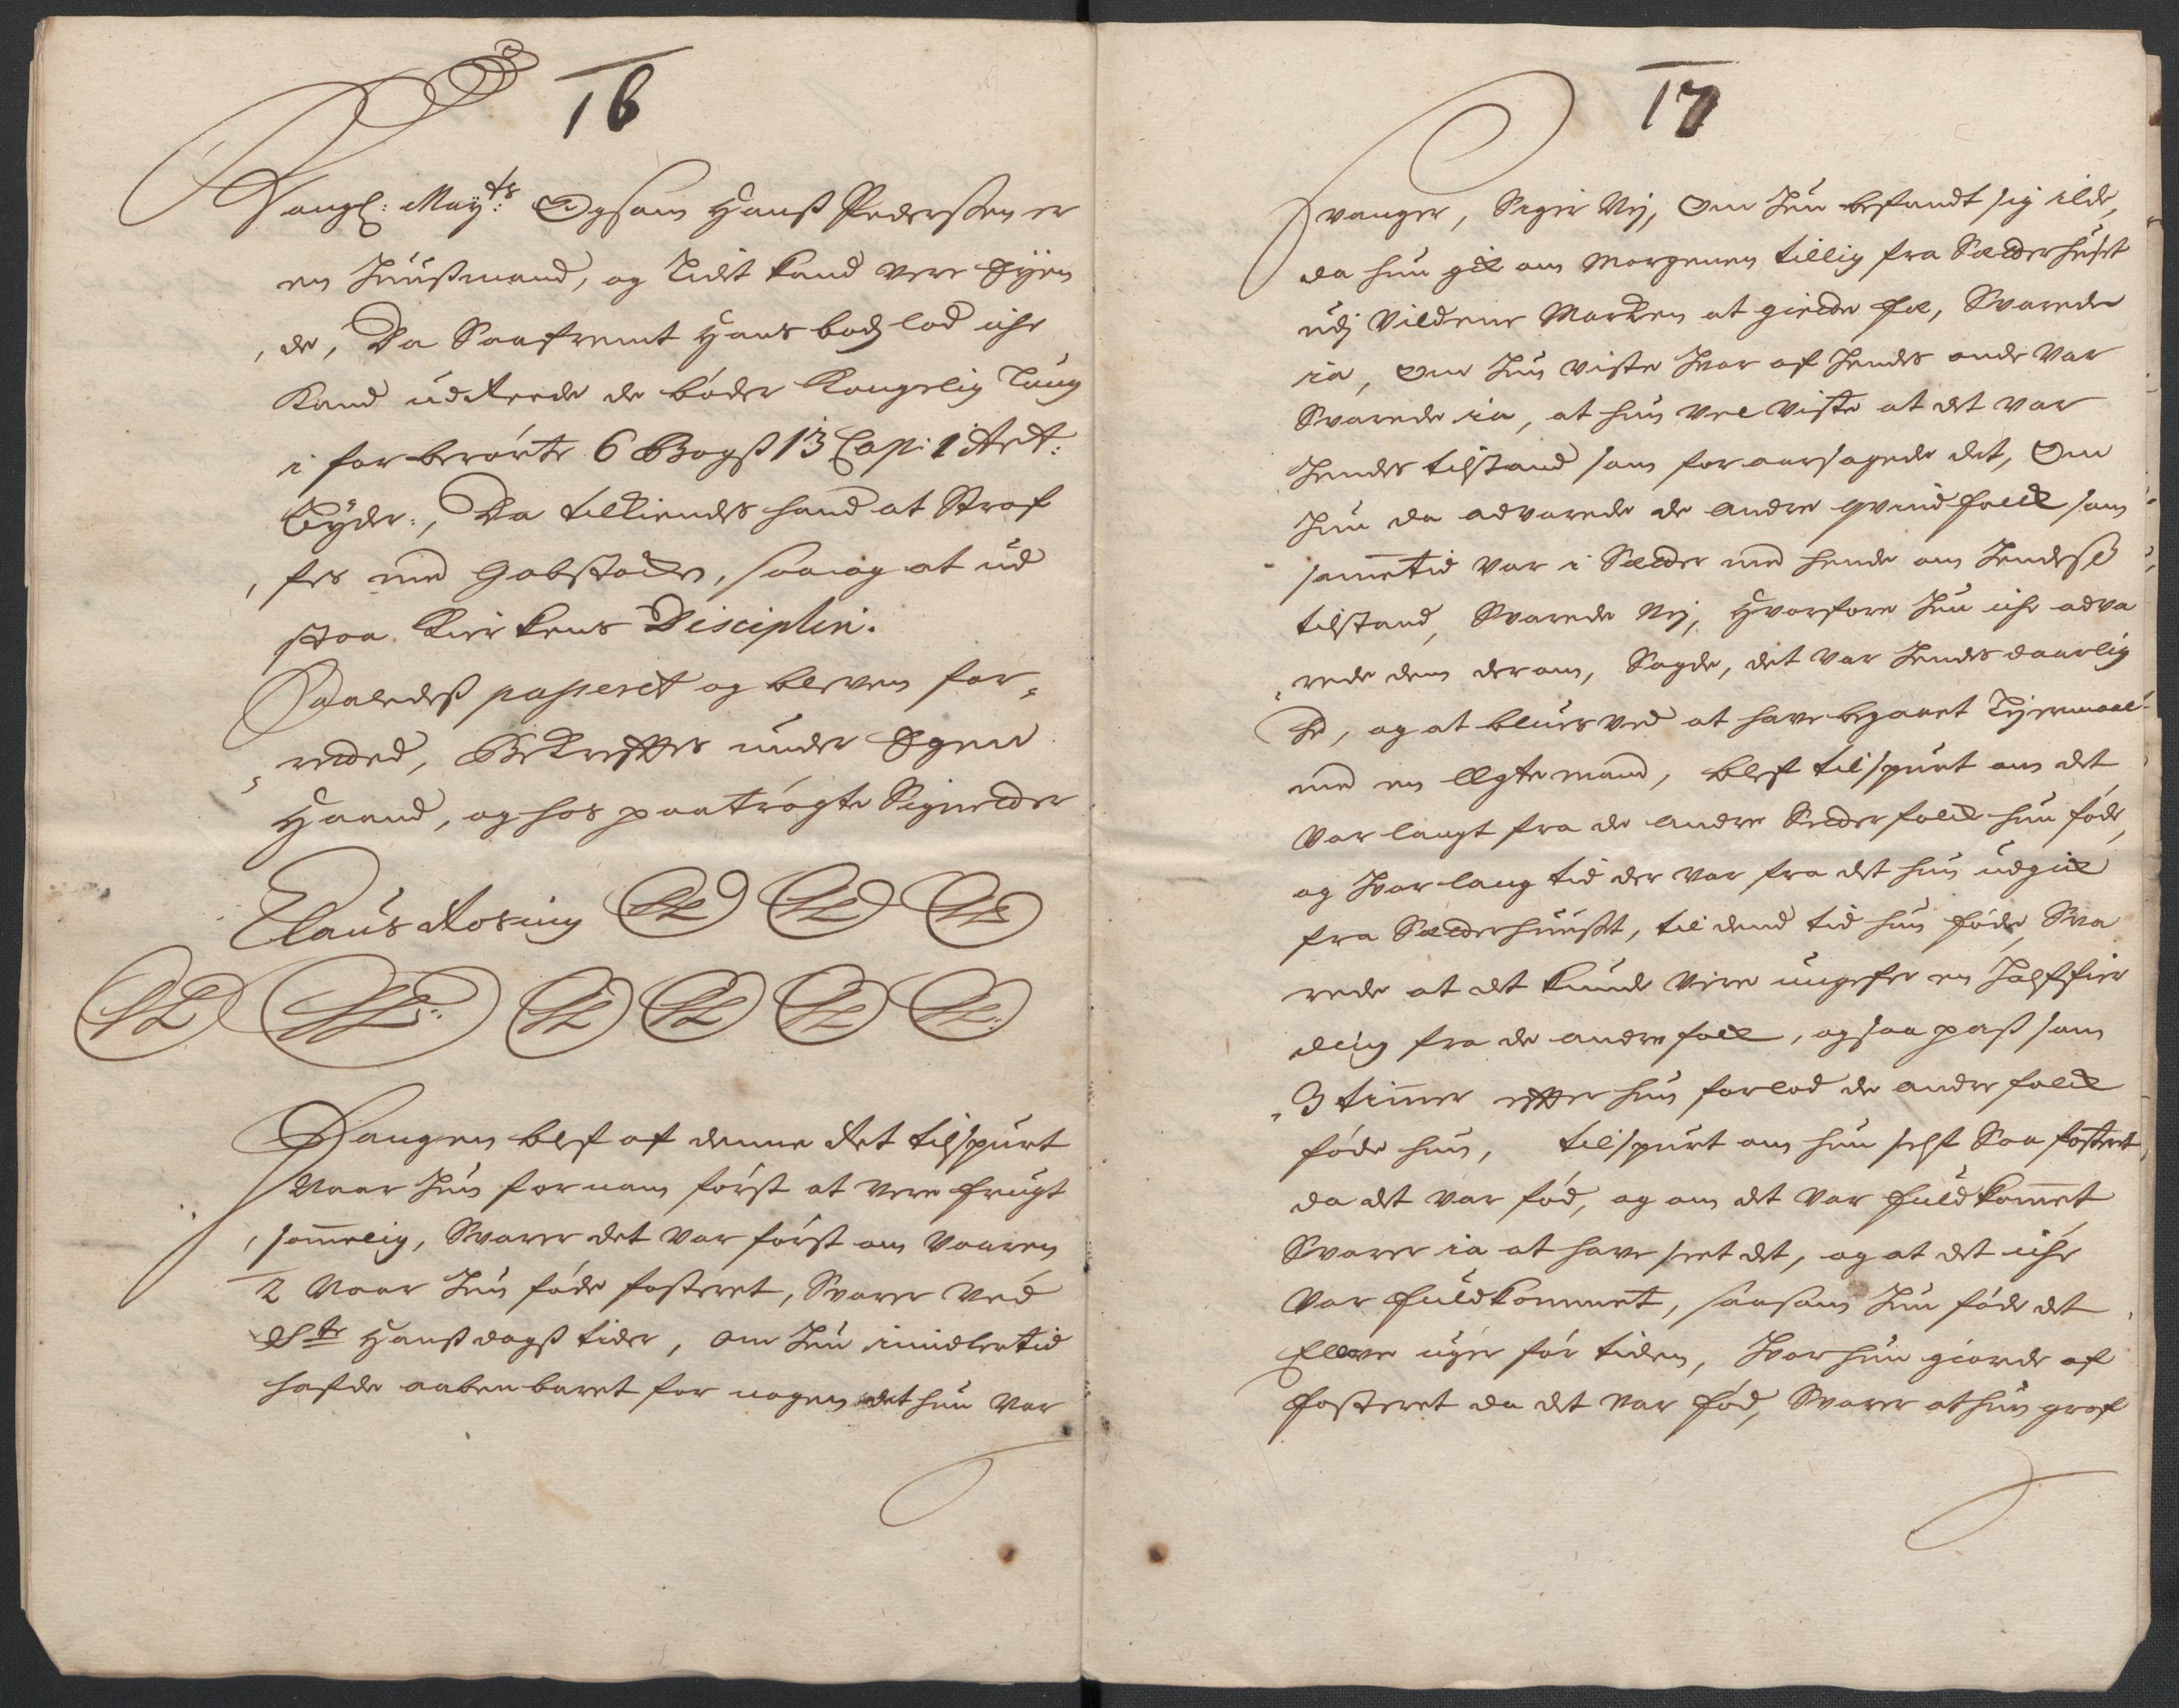 16
Kongl: May:ts Ogsom Hanß Pederßen er
en Huußmand, og lidet kand vere Eÿen
de, Da Saafremt Hans boeslod iche
kand udreede de bøder Kongelig Loug
i forberørte 6 Bogß 13 Cap: 1 Art:
byder, Da tilkiendes hand at Straf
fes med Gabstochen, saa og at ud
staa Kirkens Disciplin.
Saaledeß passeret og bleven for
retted, Bekreftes under Egen
Haand, og hos paatrøgte Signetter
Claus Rosing LS LS LS
LS LS LS LS LS LS
Fangen blef af denne Ret tilspurt
Naar hun fornam først at vere frugt
sommelig, Svarer det var først om Vaaren
2 Naar hun føde fosteret, Svarer ved
St: Hanßdagß tider, Om hun imidlertid
hafde aabenbaret for nogen det hun var
17
Svanger, Siger Nej, Om hun befandt sig ilde,
da hun gik om Morgenen tillig fra Sætterhuset
udj Vildene Marken at giette fæ, Svarede
ia, Om hun viste hvor af hendes onde var
Svarede ia, at hun vel viste at det var
hendes tilstand som foraarsagede det, Om
hun da advarede de andre qvindfolk som
sammetid var i Sætter med hende om hendeß
tilstand, Svarede Nej, Hvorfore hun iche adva
rede dem derom, Sagde, det var hendes daarlig
hed, og at blues ved at have begaaet Lejermaal
med en Ægtemand, blef tilspurt om det
var langt fra de andre Setterfolk hun føde,
og hvor lang tid der var fra det hun udgik
fra Sætterhuußet, til dend tid hun føde, Sva
rede at det kunde vere ungefer en halffier
ding fra de andre folk, og saa paß som
3 timer efter hun forlod de andre folk
føde hun, tilspurt om hun self Saa fostret
da det var fød, og om det var fuldkommet
Svarer ia at have seet det, og at det iche
var fuldkommet, saasom hun føde det
Elleve uger før tiden, hvor hun giorde af
fosteret da det var fød, Svarer at hun grof